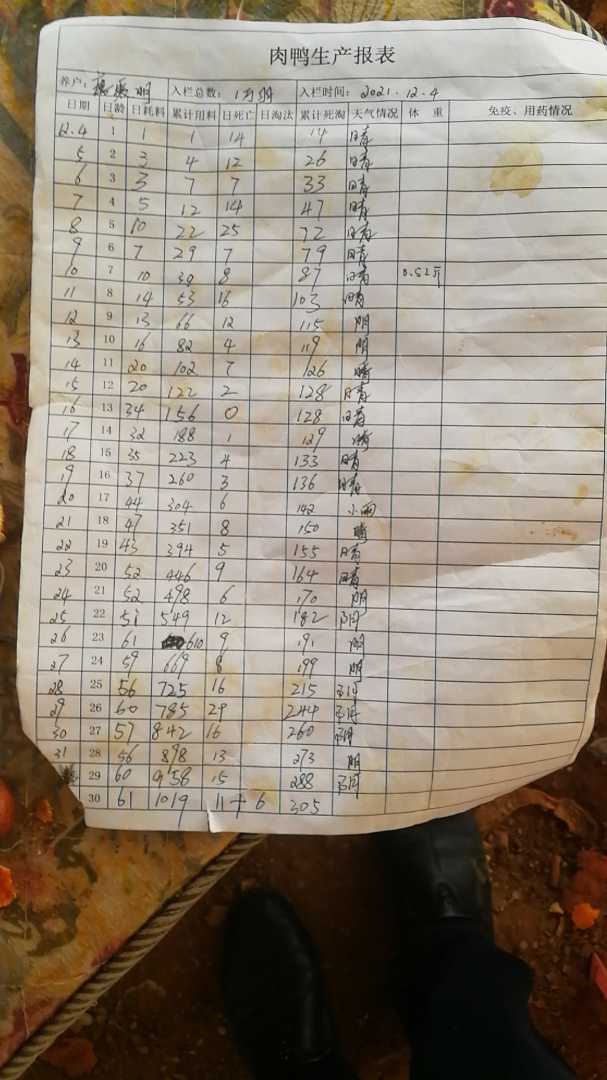 肉鸭生产报表
养户: 明 入栏总数: 1万羽 入栏时间: 2021.12.4
日期 日龄 日耗料 累计用料 日死亡 日淘汰 累计死淘 天气情况 体 重 免疫、用药情况
12.4 1 1 1 14 14 晴
5 2 3 4 12 26 晴
6 3 3 7 7 33 晴
7 4 5 12 14 47 晴
8 5 10 22 25 72 晴
9 6 7 29 7 79 晴
10 7 10 39 8 87 晴 0.52斤
11 8 14 53 16 103 晴
12 9 13 66 12 115 阴
13 10 16 82 4 119 阴
14 11 20 102 7 126 晴
15 12 20 122 2 128 晴
16 13 34 156 0 128 晴
17 14 32 188 1 129 晴
18 15 35 223 4 133 晴
19 16 37 260 3 136 晴
20 17 44 304 6 142 小雨
21 18 47 351 8 150 晴
22 19 43 394 5 155 晴
23 20 52 446 9 164 晴
24 21 52 498 6 170 阴
25 22 51 549 12 182 阴
26 23 61 610 9 191 阴
27 24 59 669 8 199 阴
28 25 56 725 16 215 阴
29 26 60 785 29 244 阴
30 27 57 842 16 260 阴
31 28 56 898 13 273 阴
29 60 958 15 288 阴
30 61 1019 11+6 305